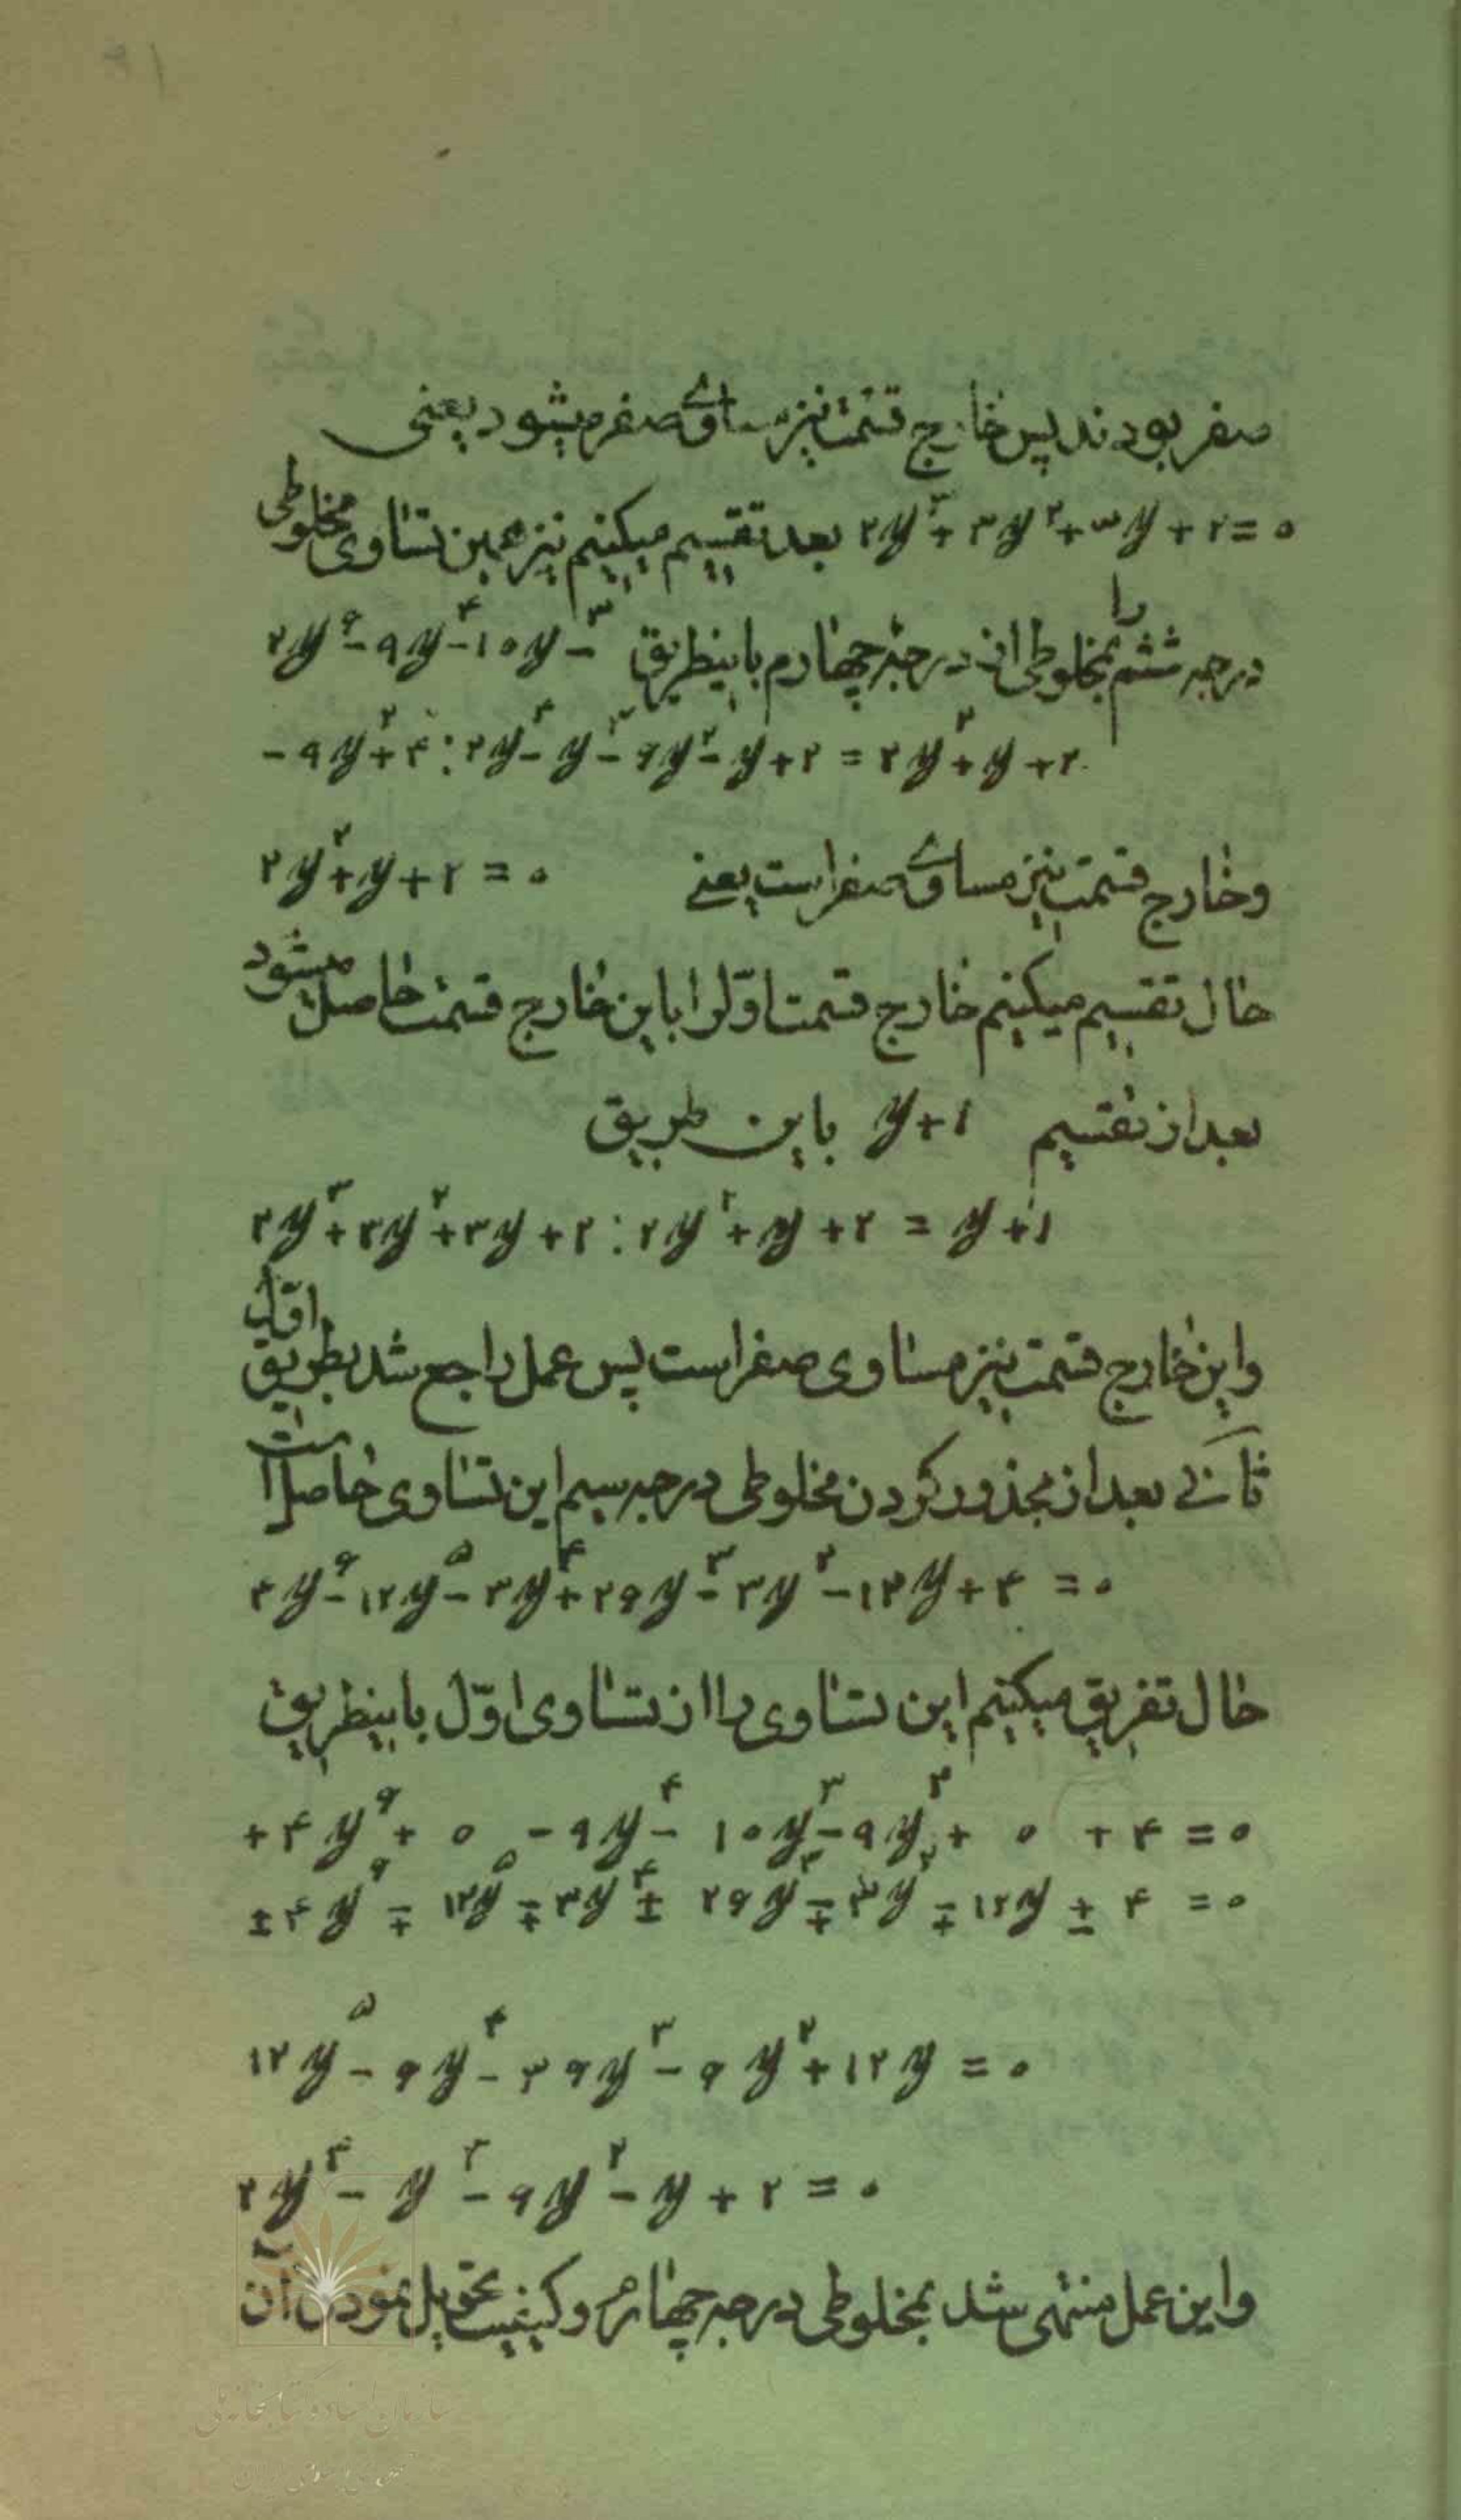 صفر بودند پس خارج قسمت نیز مساوی صفر میشود یعنی
۲y³+۳y²+۳y+۲=۰ بعد تقسیم میکنیم نیز همین تساوی مخلوطی
درجه ششم را بمخلوطی از درجهٔ چهارم باینطریق ۴y⁶-۹y⁴-۱۰y³-
-۹y²+۴:۲y⁴-y³-۶y²-y+۲=۲y²+y+۲
و خارج قسمت نیز مساوی صفر است یعنی ۲y²+y+۲=۰
حال تقسیم میکنیم خارج قسمت اوّل را باین خارج قسمت حاصل میشود
بعد از تقسیم y+۱ باین طریق
۲y³+۳y²+۳y+۲:۲y²+y+۲=y+۱
و این خارج قسمت نیز مساوی صفر است پس عمل راجع شد بطریق اوّل
ثانی بعد از مجذور کردن مخلوطی درجه سیم این تساوی حاصل است
۴y⁶-۱۲y⁵-۳y⁴+۲۶y³-۳y²-۱۲y+۴=۰
حال تفریق میکنیم این تساوی را از تساوی اوّل باینطریق
+۴y⁶+۰-۹y⁴-۱۰y³-۹y²+۰+۴=۰
±۴y⁶∓۱۲y⁵∓۳y⁴±۲۶y³∓۳y²∓۱۲y±۴=۰
۱۲y⁵-۶y⁴-۳۶y³-۶y²+۱۲y=۰
۲y⁴-y³-۶y²-y+۲=۰
و این عمل منتهی شد بمخلوطی درجه چهارم و کیفیت تحویل نمودن آن